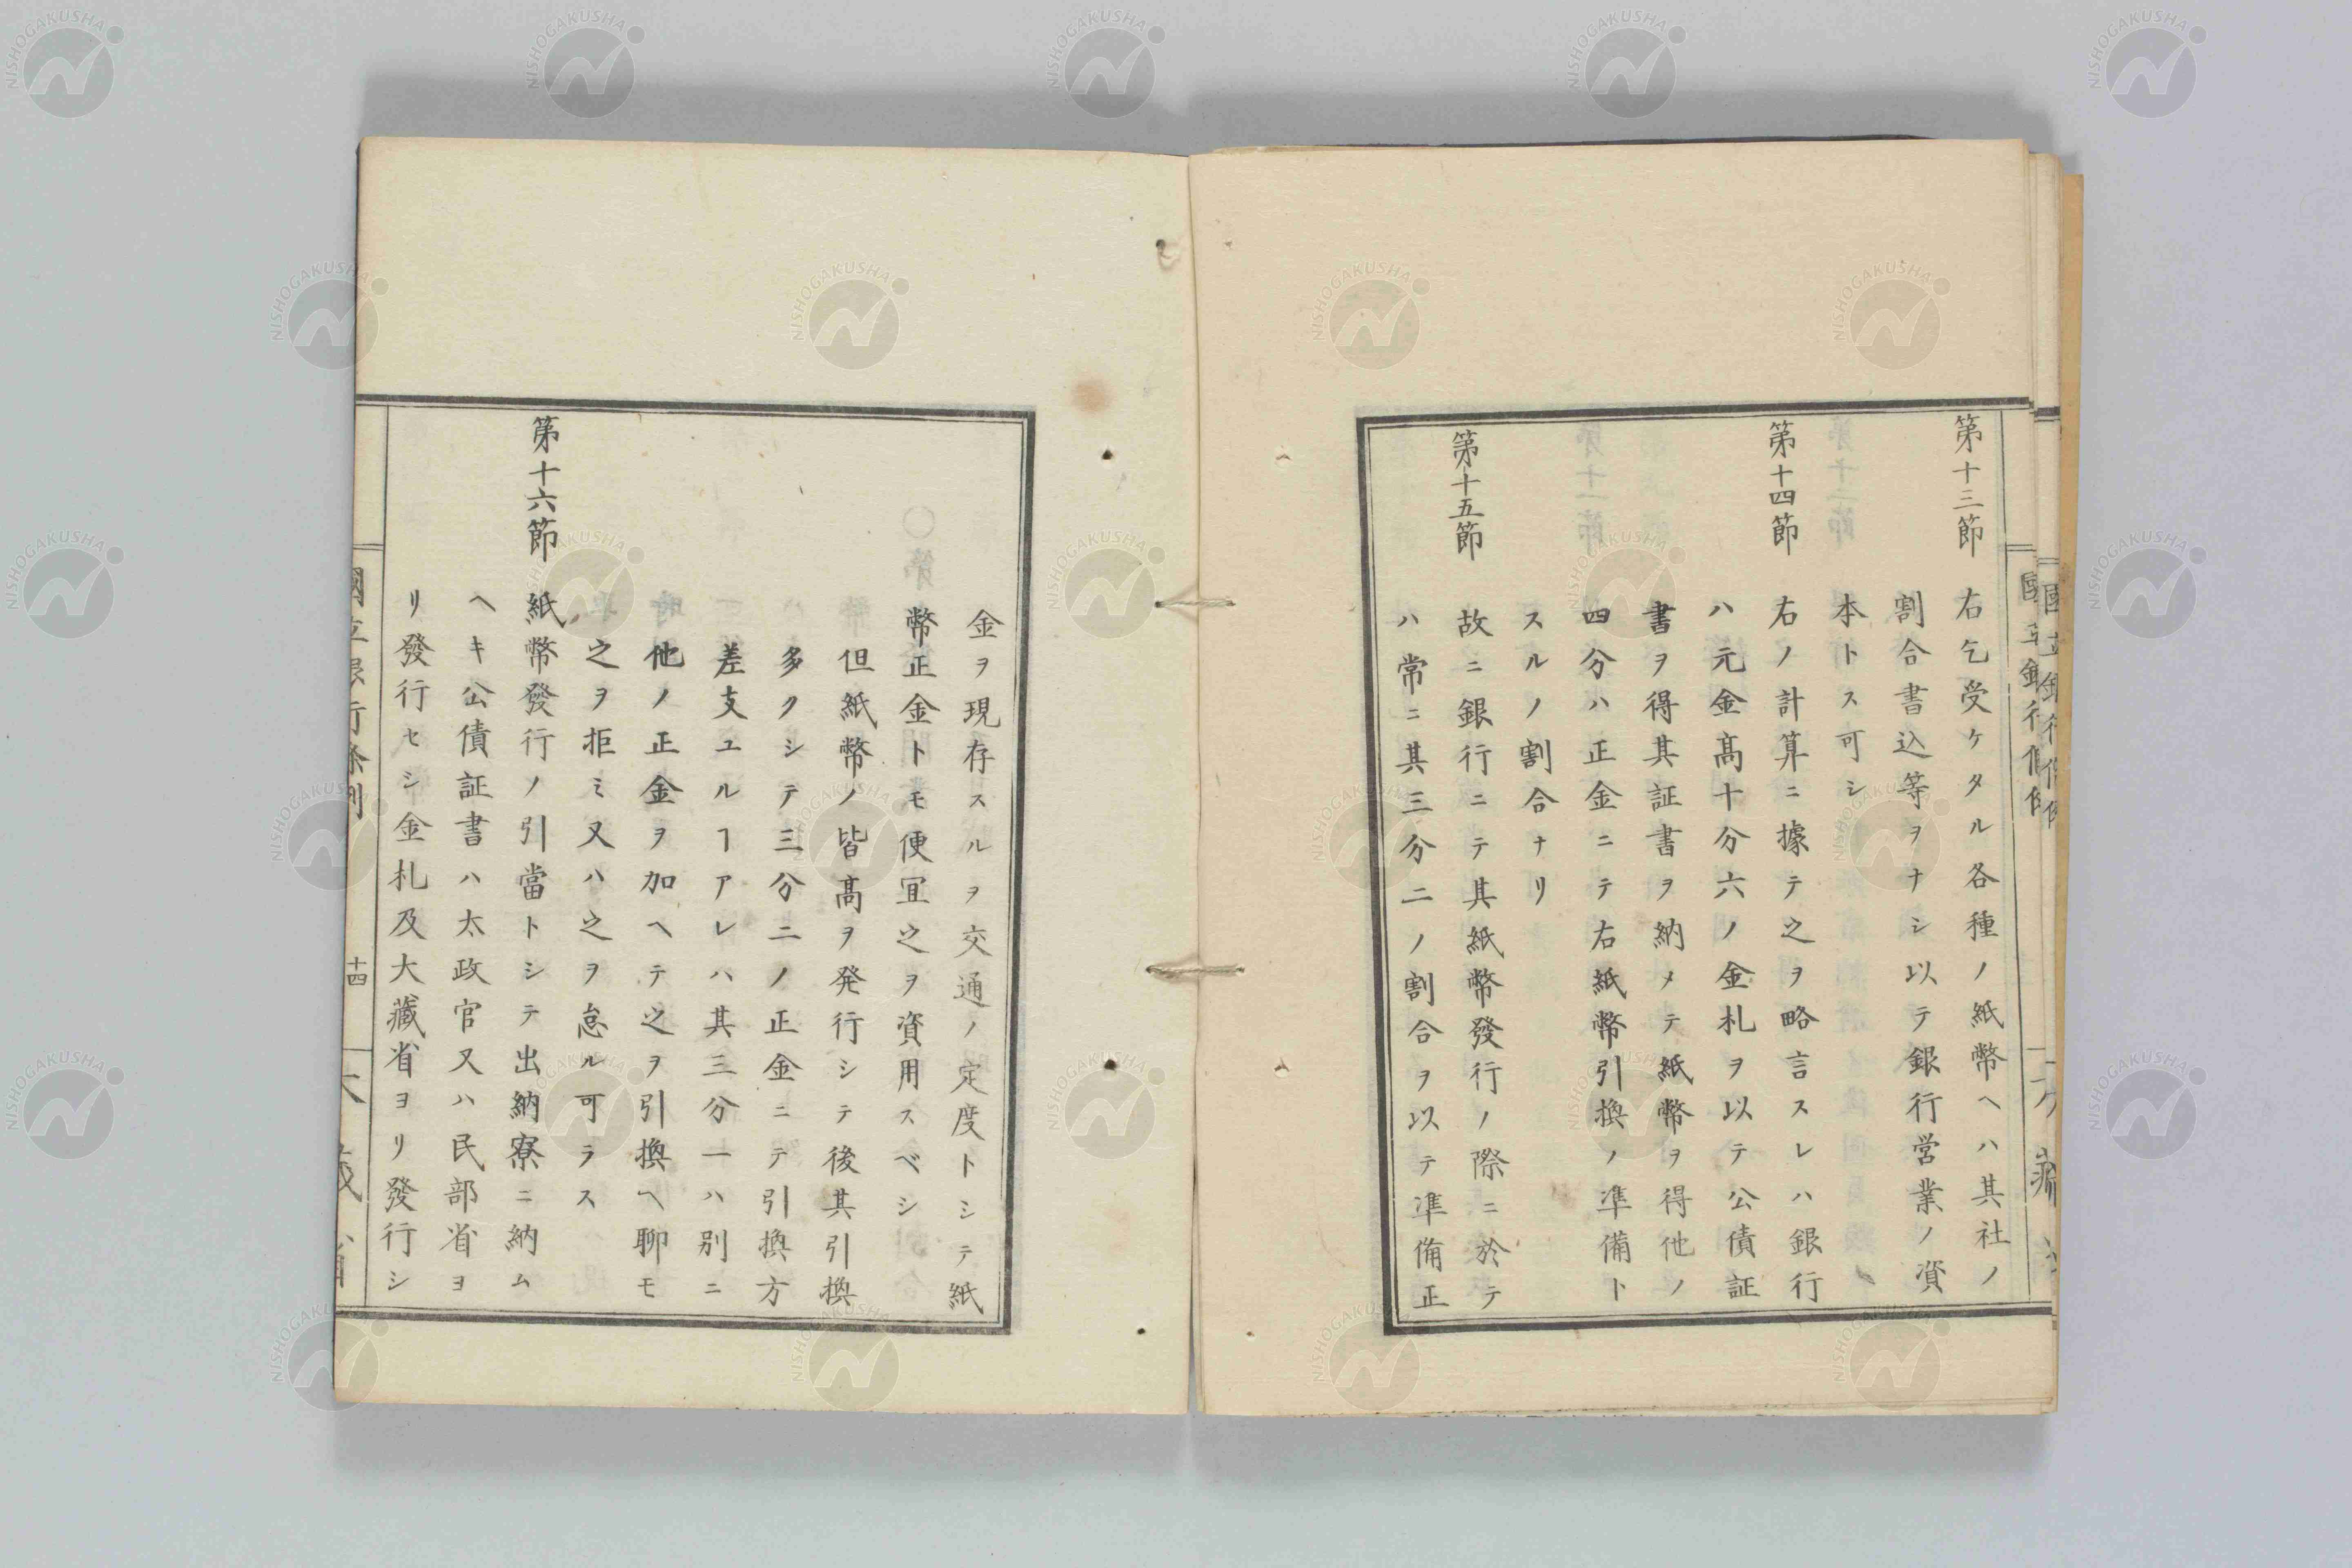 第十三節　右乞受ケタル各種ノ紙幣ヘハ其社ノ
割合書込等ヲナシ以テ銀行営業ノ資
本トス可シ
第十四節　右ノ計算ニ據テ之ヲ略言スレハ銀行
ハ元金髙十分六ノ金札ヲ以テ公債証
書ヲ得其証書ヲ納メテ紙幣ヲ得他ノ
四分ハ正金ニテ右紙幣引換ノ準備ト
スルノ割合ナリ
第十五節　故ニ銀行ニテ其紙幣發行ノ際ニ於テ
ハ常ニ其三分二ノ割合ヲ以テ準備正
金ヲ現存スルヲ交通ノ定度トシテ紙
幣正金トモ便冝之ヲ資用スベシ
但紙幣ノ皆髙ヲ発行シテ後其引換
多クシテ三分二ノ正金ニテ引換方
差支ユルヿアレハ其三分一ハ別ニ
他ノ正金ヲ加ヘテ之ヲ引換ヘ聊モ
之ヲ拒ミ又ハ之ヲ怠ル可ラス
第十六節　紙幣發行ノ引當トシテ出納寮ニ納ム
ヘキ公債証書ハ太政官又ハ民部省ヨ
リ發行セシ金札及大藏省ヨリ發行シ
國立銀行條例
十四
大藏省
NISHOGAKUSHA